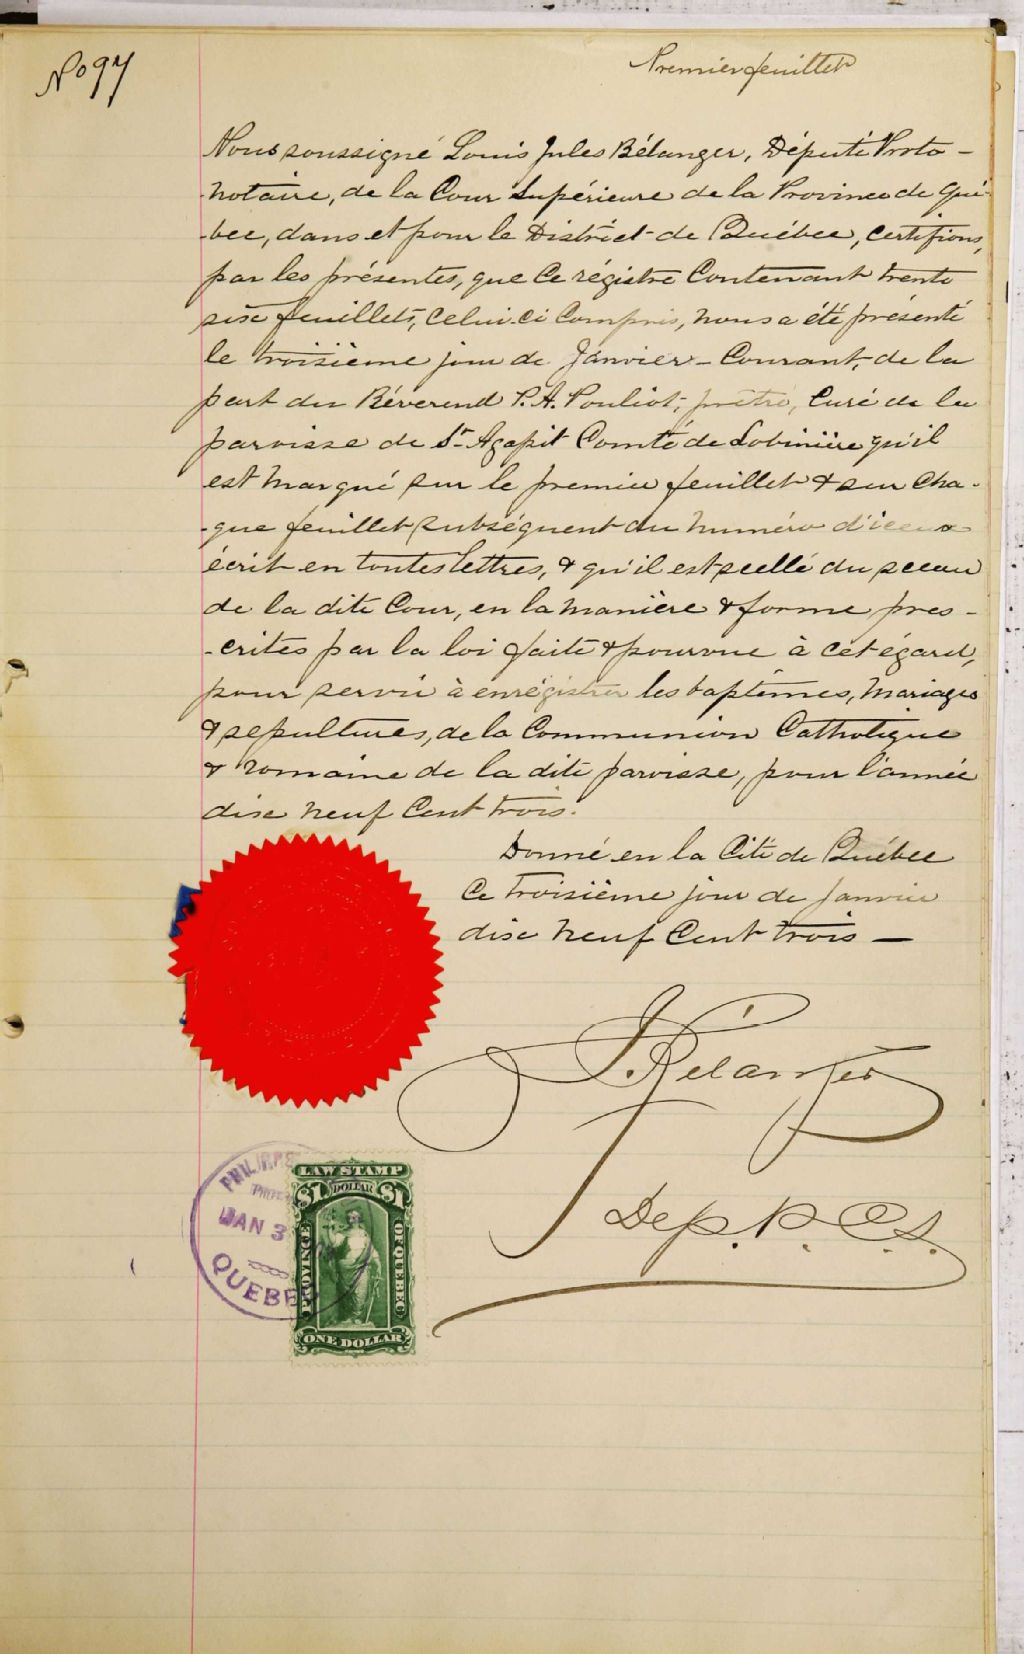 No 97
Premier feuillet
Nous soussigné Louis Jules Bélanger, Député Proto-
-notaire, de la Cour Supérieure de la Province de Qué-
-bec, dans et pour le District de Québec, certifions,
par les présentes, que ce régistre Contenant trente
six feuillets, celui-ci Compris, nous a été présenté
le troisième jour de Janvier - Courant, de la
part du Révérend P. A. Pouliot, prêtre, Curé de la
paroisse de St Agapit Comté de Lotbinière qu'il
est marqué sur le premier feuillet & sur cha-
-que feuillet subséquent du numéro d'iceux
écrit en toutes lettres, & qu'il est scellé du sceau
de la dite Cour, en la manière & forme pres-
-crites par la loi faite & pourvue à cet égard,
pour servir à enrégistrer les baptêmes, Mariages
& sepultures, de la Communion Catholique
& romaine de la dite paroisse, pour l'année
dix neuf Cent trois.
Donné en la Cité de Québec
Ce troisième jour de Janvier
dix neuf Cent trois —
J. Belanger
Dep. P. C. S.
PHILIPPE
JAN 3
QUEBEC
LAW STAMP
$1 DOLLAR $1
PROVINCE OF QUEBEC
ONE DOLLAR